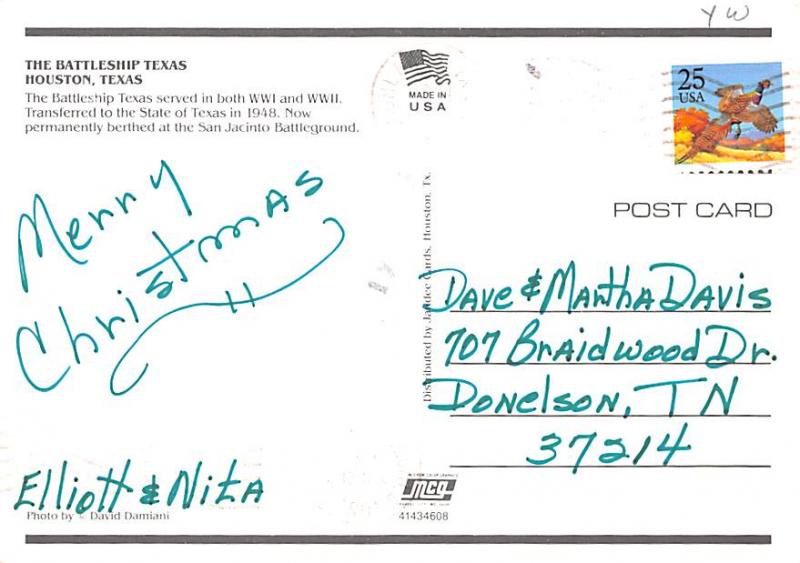 YW
THE BATTLESHIP TEXAS
HOUSTON, TEXAS
The Battleship Texas served in both WWI and WWII.
Transferred to the State of Texas in 1948. Now
permanently berthed at the San Jacinto Battleground.
MADE IN
USA
25
USA
POST CARD
Merry
Christmas
Distributed by Cards, Houston, Tx.
Dave & Martha Davis
707 Braidwood Dr.
Donelson, TN
37214
Elliott & Nita
Photo by © David Damiani
mcg
41434608